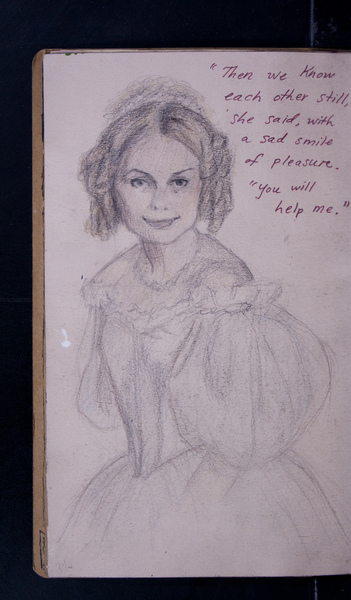 "Then we Know
each other still,
'she said, with
a sad smile
of pleasure.
"You will
help me."